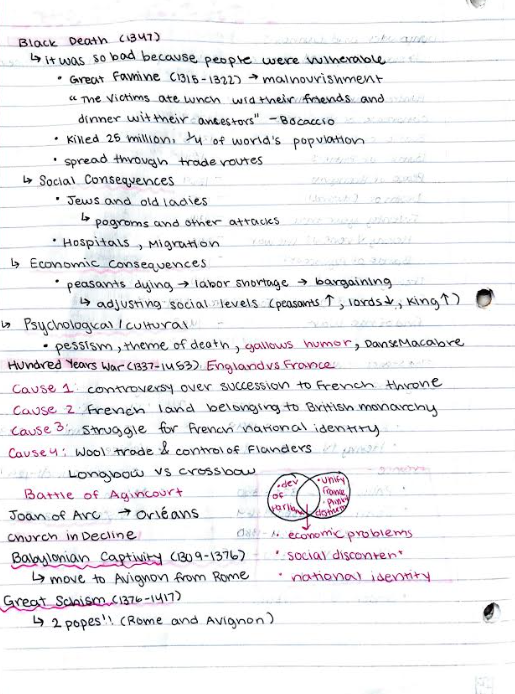 Black Death (1347)
↳ it was so bad because people were vulnerable
• Great Famine (1315-1322) → malnourishment
"The victims ate lunch wid their friends and
dinner wit their ancestors" - Bocaccio
• Killed 25 million, 1/4 of world's population
• spread through trade routes
↳ Social Consequences
• Jews and old ladies
↳ pogroms and other attacks
• Hospitals, Migration
↳ Economic Consequences
• peasants dying → labor shortage → bargaining
↳ adjusting social levels (peasants ↑, lords ↓, King ↑)
↳ Psychological/cultural
• pessism, theme of death, gallows humor, Danse Macabre
Hundred Years War (1337-1453) England vs France
Cause 1: controversy over succession to French throne
Cause 2: French land belonging to British monarchy
Cause 3: Struggle for French national identity
Cause 4: Wool trade & control of Flanders
Longbow vs crossbow
Battle of Agincourt
• dev
of
• unify
France
Joan of Arc → Orléans
Church in Decline
• economic problems
Babylonian Captivity (1309-1376)
• social discontent
↳ move to Avignon from Rome
• national identity
Great Schism (1376-1417)
↳ 2 popes!! (Rome and Avignon)